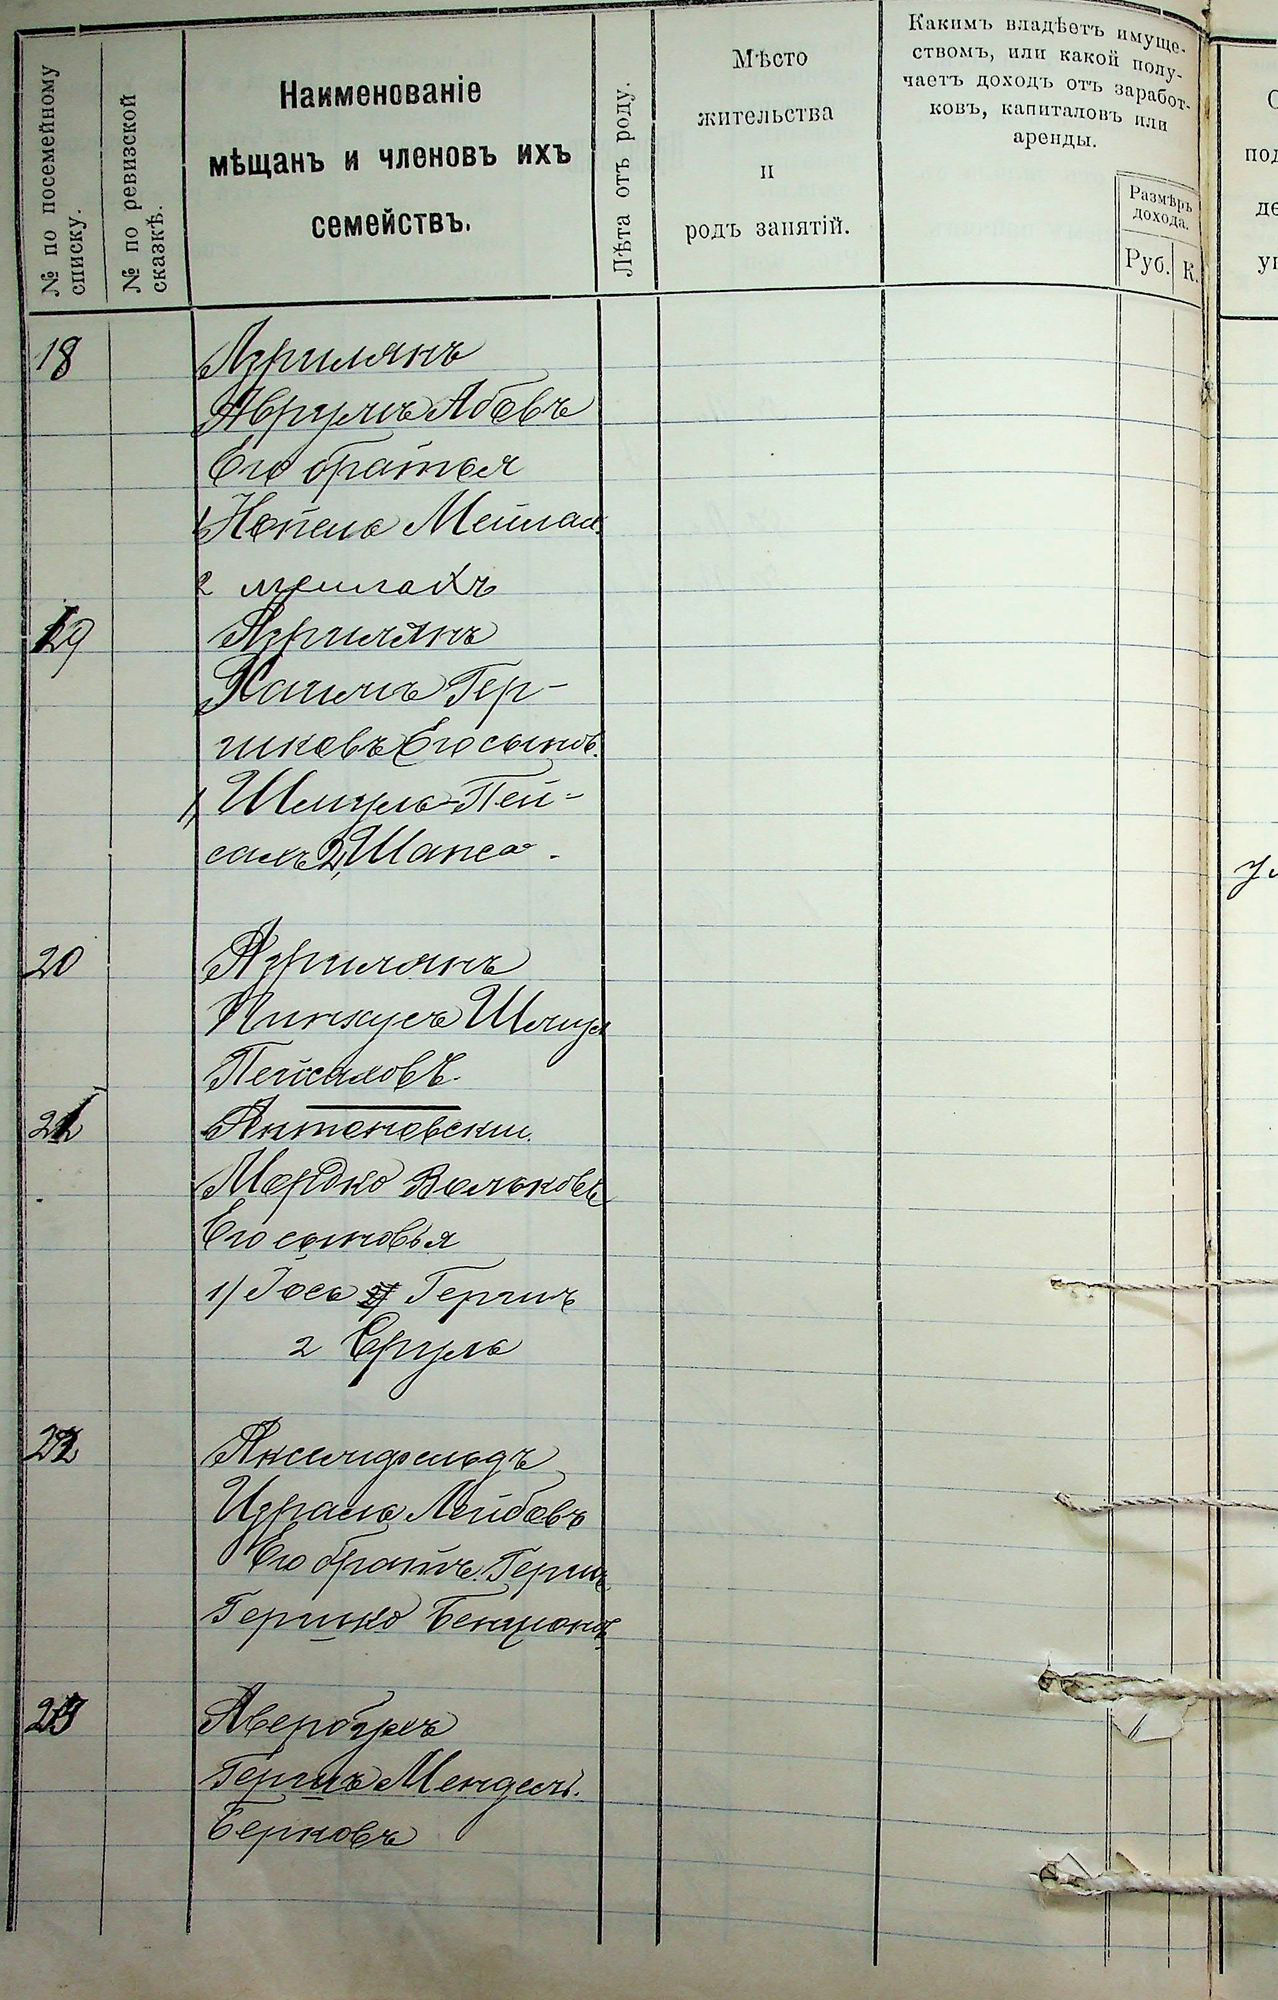 № по посемейному списку.
№ по ревизской сказкѣ.
Наименованіе
мѣщанъ и членовъ ихъ
семействъ.
Лѣта отъ роду.
Мѣсто
жительства
и
родъ занятій.
Какимъ владѣетъ имуще-
ствомъ, или какой полу-
чаетъ доходъ отъ заработ-
ковъ, капиталовъ или
аренды.
Размѣръ
дохода.
Руб. К.
18 Азрилянъ
Аврумъ Абовъ
Его братья
1, Копель Мейлах
2 мейлахъ
19 Азрилянъ
Хаимъ Гер-
шковъ Его сынов.
1, Шмуль-Пей-
сахъ 2, Шапса.
20 Азрилянъ
Пинхусъ Шмул
Пейсаховъ.
21 Антоновскій.
Мордко Вольковъ
Его сыновья
1) Іось Гершъ
2 Сруль
22 Аксенфельдъ
Израиль Лейбовъ
Его братъ Гершъ
Гершко Бенціонъ
23 Авербухъ
Гершъ Мендель.
Берковъ